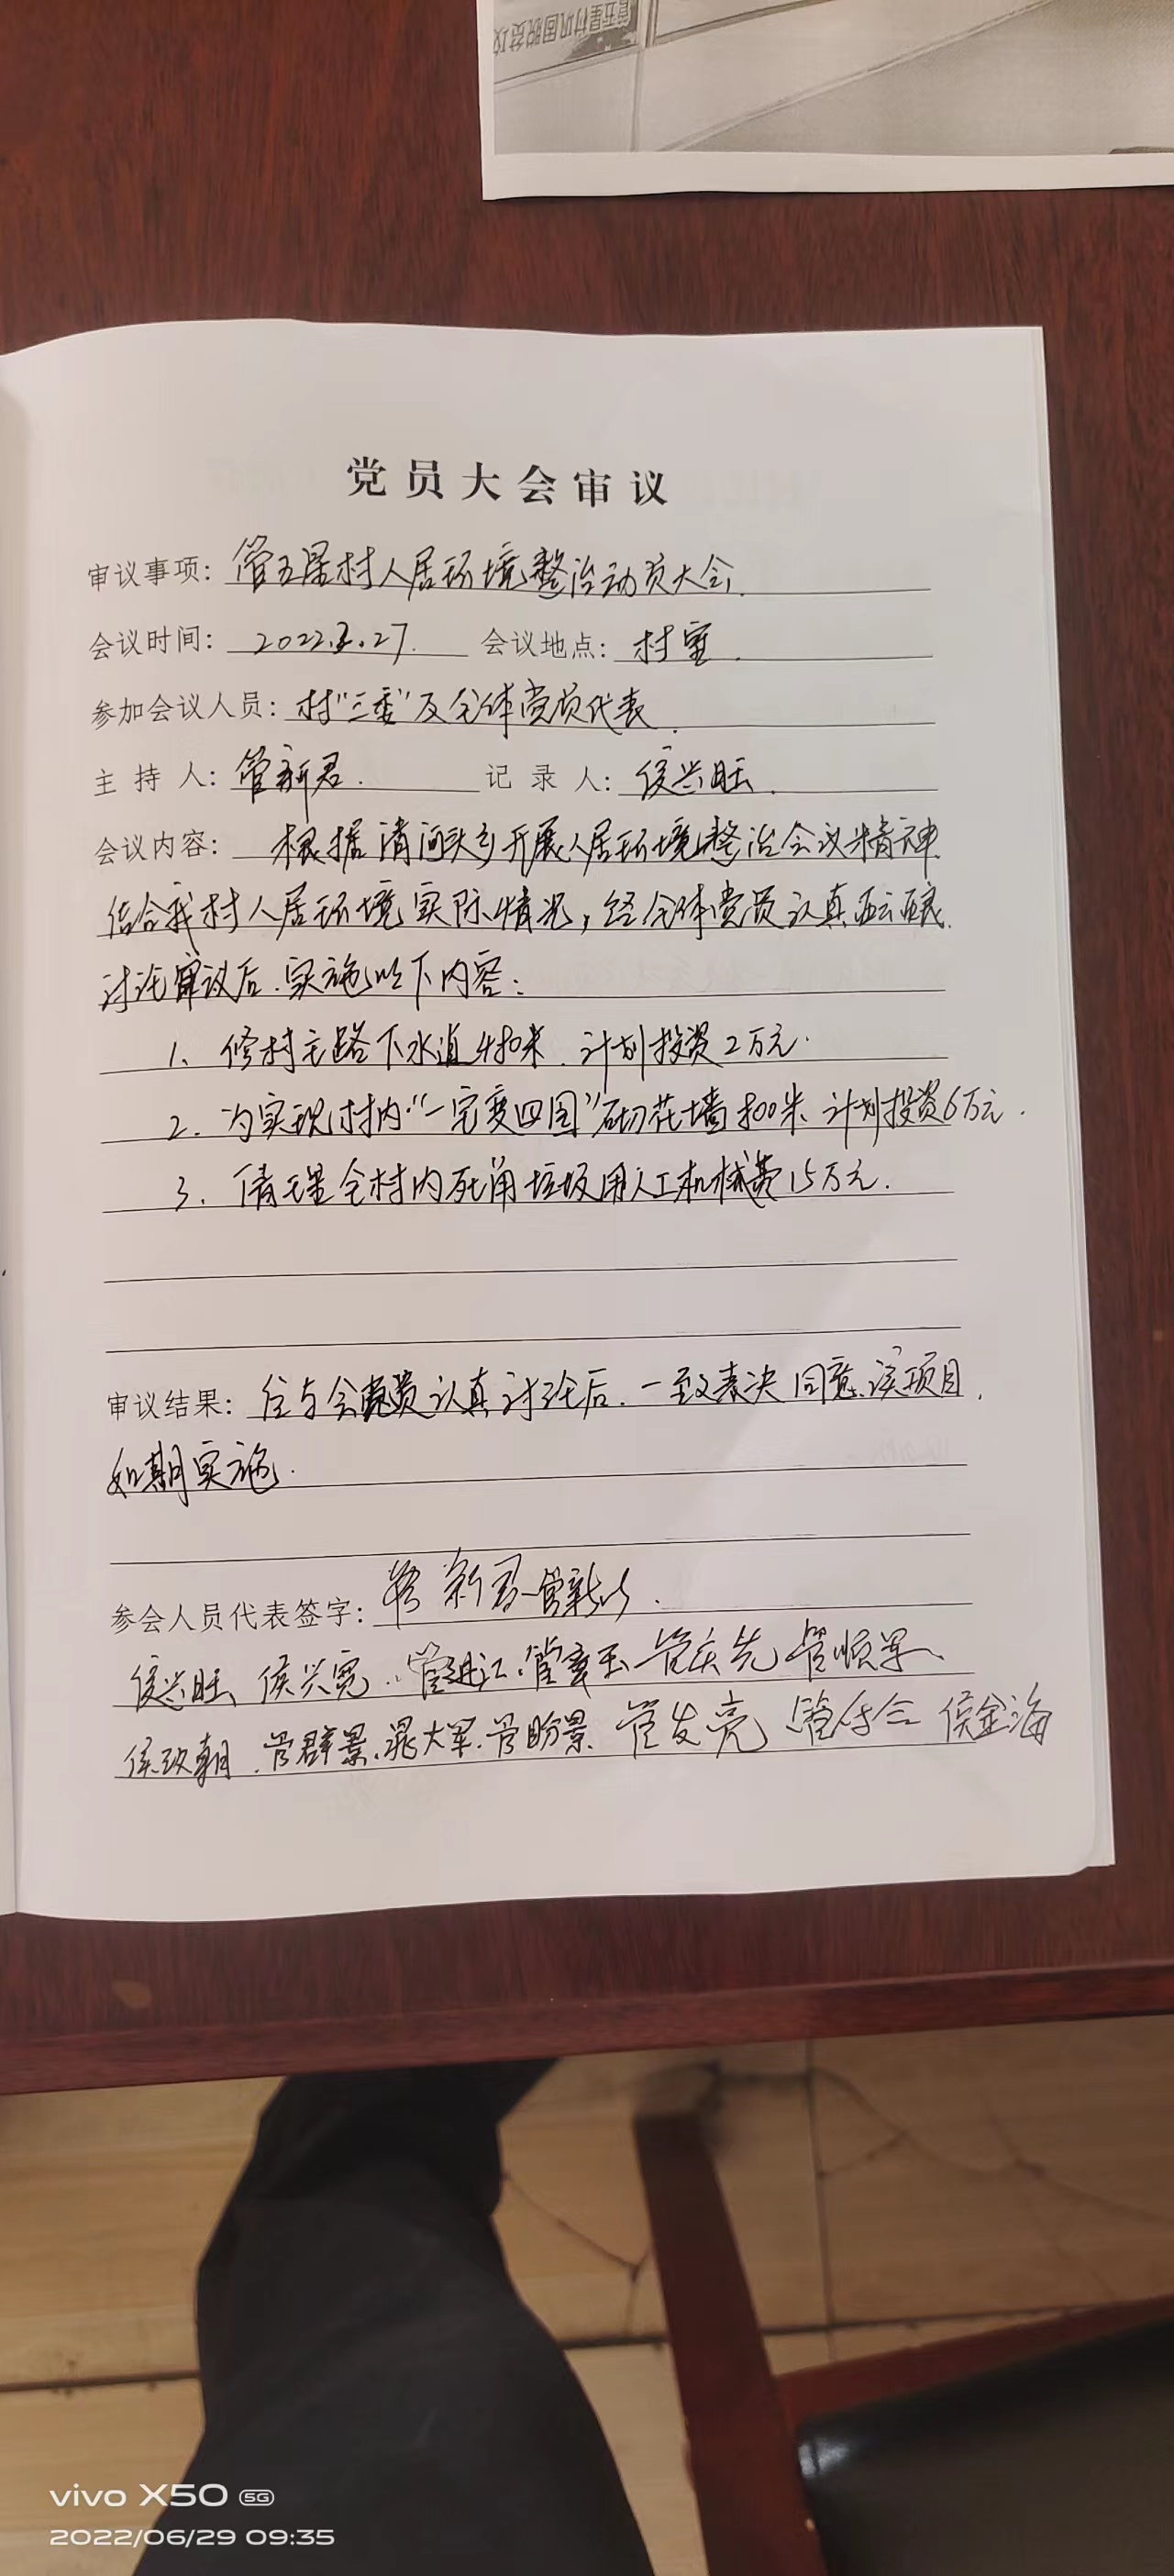 管五星村巩固脱贫攻
党员大会审议
审议事项：管五星村人居环境整治动员大会.
会议时间：2022.3.27. 会议地点：村室.
参加会议人员：村“三委”及全体党员代表.
主持人：管新君. 记录人：侯兴旺.
会议内容：根据清河头乡开展人居环境整治会议精神
结合我村人居环境实际情况，经全体党员认真酝酿.
讨论审议后.实施以下内容：
1、修村主路下水道480米.计划投资2万元.
2.为实现村内“一宅变四园”砌花墙800米.计划投资6万元.
3.清理全村内死角垃圾用人工机械费15万元.
审议结果：经与会党员认真讨论后.一致表决同意.该项目.
如期实施.
参会人员代表签字：管新君
侯兴旺、侯兴宽.管进江.管庆先 管顺军、
侯政朝.管群景.晁大军.管盼景.管发亮 侯金海
vivo X50 5G
2022/06/29 09:35